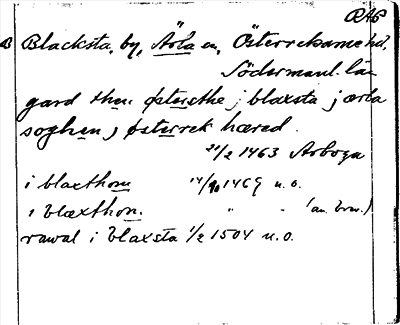 RAP
Blacksta, by, Ärla sn, Österrekarne hd.
Södermanl. län
gard then østersthe j blaxsta j ærla
soghen j østerrek hæred.
21/2 1463 Arboga
i blaxthom 14/10 1469 u.o.
i blæxthom. " " (an. brev.)
rawal i blaxsta 1/2 1504 u.o.